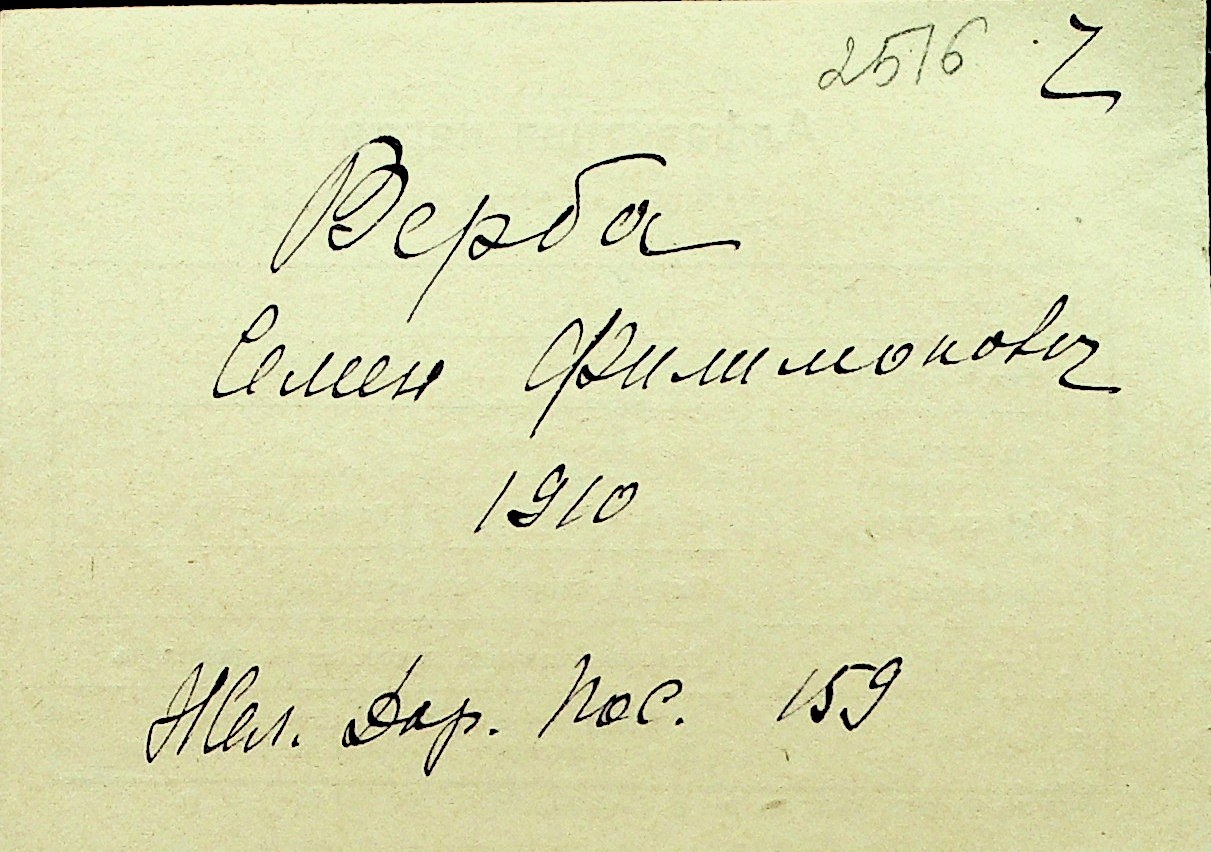 2516
Верба
Семен Филимонович
1910
Жел. Дор. Пос. 159